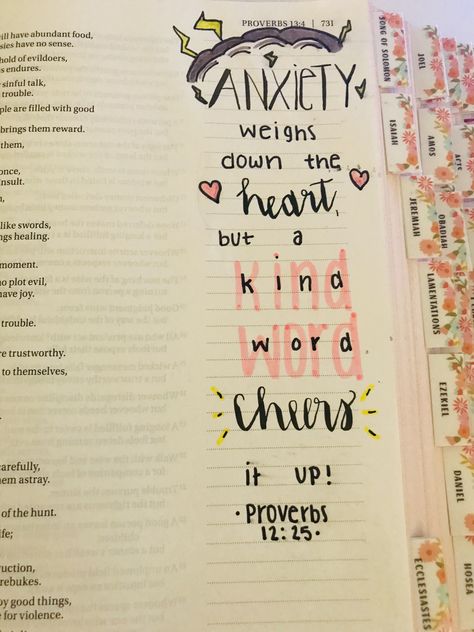 PROVERBS 13:4 | 731
will have abundant food,
sies have no sense.
hold of evildoers,
s endures.
sinful talk,
trouble.
ple are filled with good
brings them reward.
them,
once,
nsult.
like swords,
ngs healing.
moment.
o plot evil,
have joy.
trouble.
re trustworthy.
to themselves,
carefully,
hem astray.
of the hunt.
ife;
uction,
rebukes.
oy good things,
e for violence.
ANXIETY
weighs
down the
heart,
but a
kind
word
cheers
it up!
• Proverbs
12:25 •
SONG OF SOLOMON
ISAIAH
JEREMIAH
LAMENTATIONS
EZEKIEL
DANIEL
ECCLESIASTES
HOSEA
JOEL
AMOS
OBADIAH
ACTS